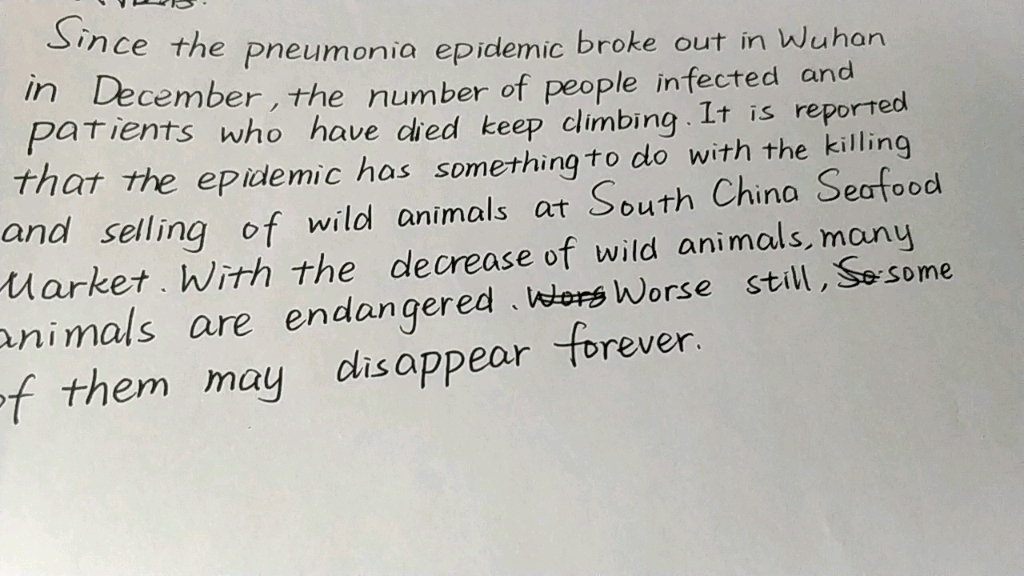 Since the pneumonia epidemic broke out in Wuhan
in December, the number of people infected and
patients who have died keep climbing. It is reported
that the epidemic has something to do with the killing
and selling of wild animals at South China Seafood
Market. With the decrease of wild animals, many
animals are endangered. Wors Worse still, So some
of them may disappear forever.